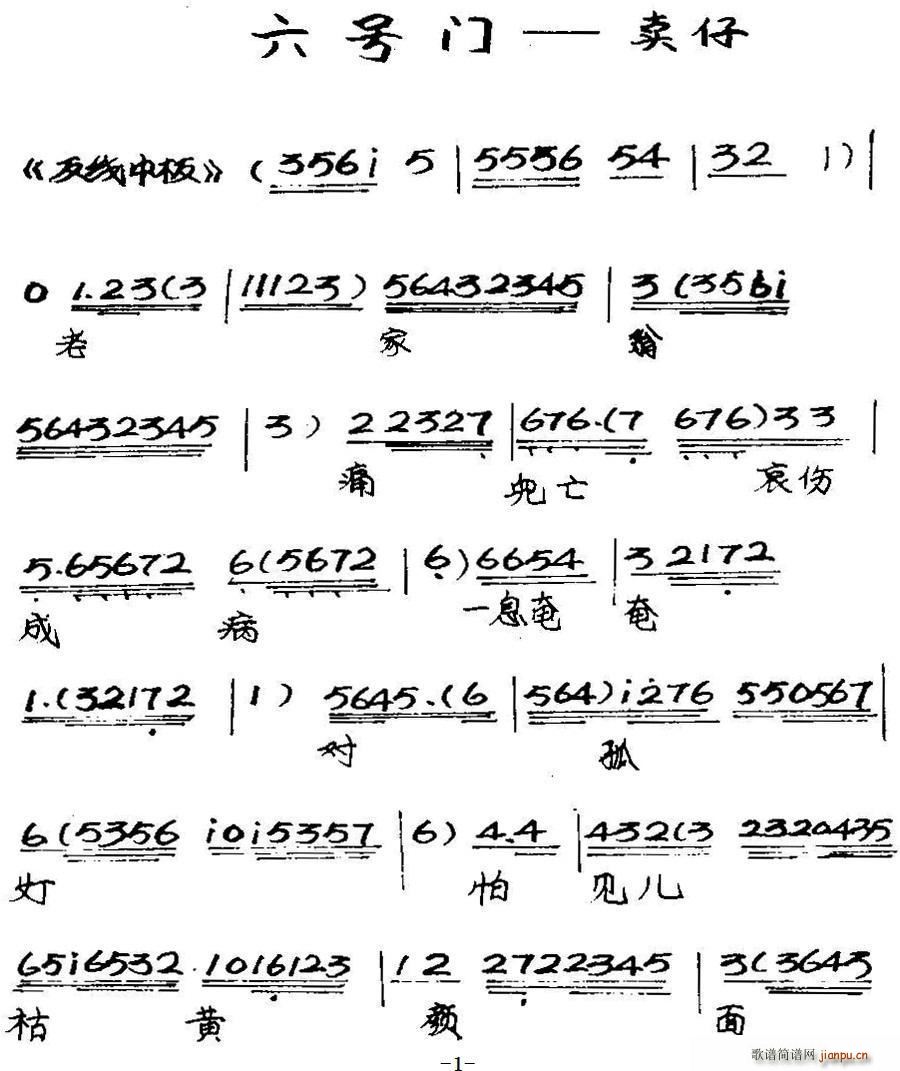 六号门——卖仔
《反线中板》 ( 3561̇ 5 | 5556 54 | 32 1) |
0 1.23(3 | 11123) 56432345 | 3 (3561̇
老 家 翁
56432345 | 3 ) 2 2327 | 676.(7 676)33 |
痛 儿亡 哀伤
5.65672 6(5672 | 6)6654 | 3 2172
成 病 一息奄 奄
1.(32172 | 1 ) 5645.(6 | 564)1̇2̇76 550567 |
对 孤
6(5356 1̇01̇5357 | 6) 4.4 | 432(3 2320435
灯 怕 见儿
651̇6532 1016123 | 12 2722345 | 3(3643
枯 黄 颜 面
-1-
歌谱简谱网 jianpu.cn